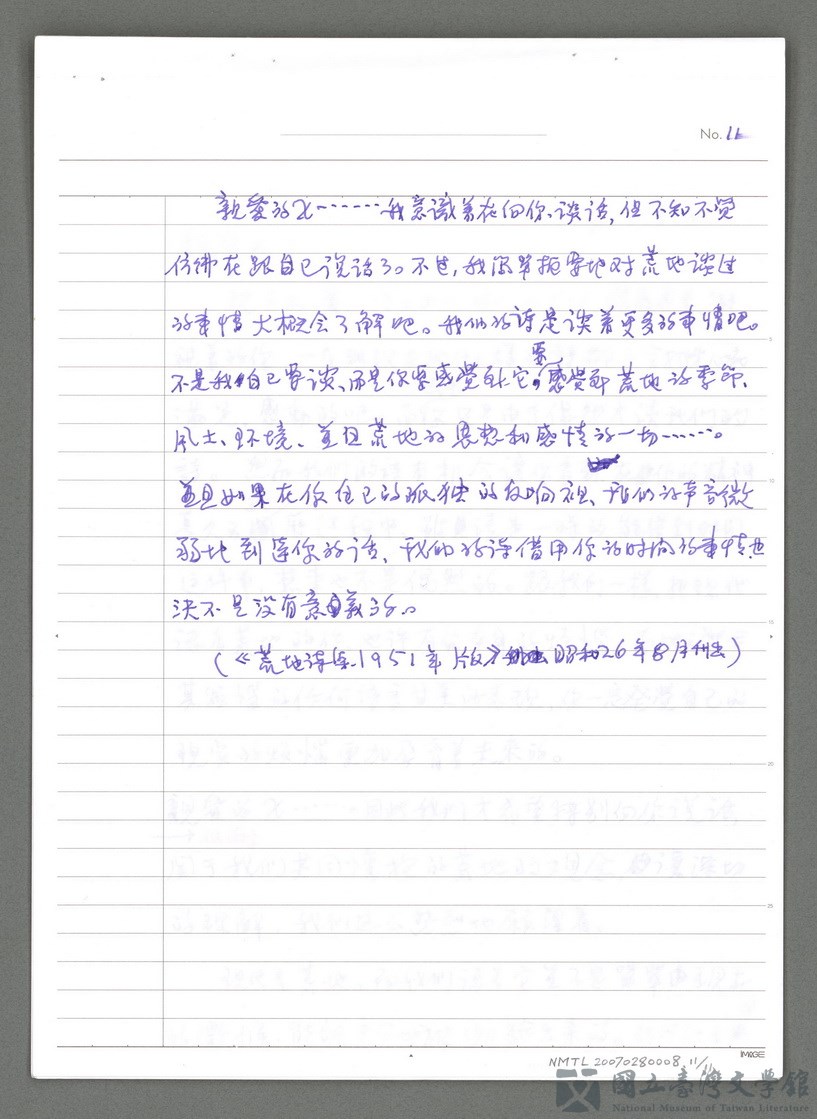 No. 11
親愛的X……我意識着在向你談话,但不知不覺
彷彿在跟自己说话了。不过,我想单扼要地对荒地談过
的事情大概会了解吧。我们的詩是談着更多的事情吧。
不是我自己要談、而是你要感覺到它,要感覺到荒地的季節、
風土、环境、並且荒地的思想和感情的一切……。
並且如果在你自己的孤独的反响裡、我们的声音微
弱地到達你的话、我们的詩借用你的时间的事情也
決不是沒有意義的。
(《荒地詩集1951年版》昭和26年8月刊出)
NMTL 20070280008, 11/11
IMAGE
國立臺灣文學館
National Museum of Taiwan Literature